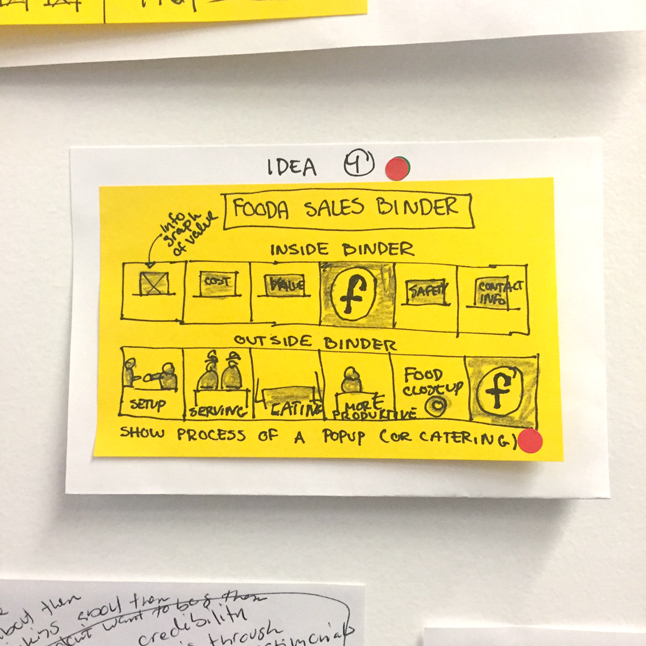 IDEA 4
FOODA SALES BINDER
info
graph
of value
INSIDE BINDER
COST
VALUE
f
SAFETY
CONTACT
INFO
OUTSIDE BINDER
SETUP
SERVING
EATING
MORE
PRODUCTIVE
FOOD
CLOSEUP
f
SHOW PROCESS OF A POPUP (OR CATERING)
about them
about them
want to be
credibility
through